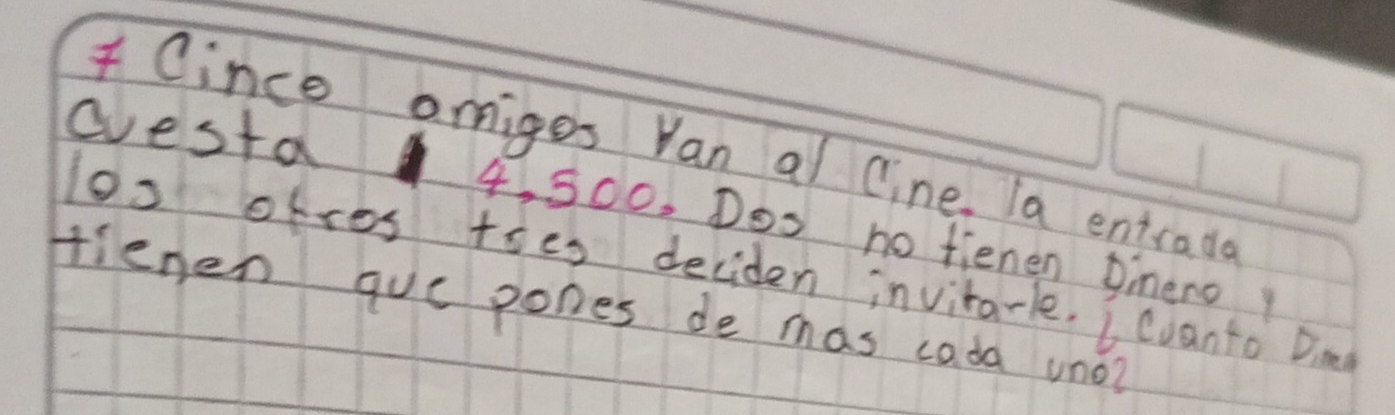 7 Cinco amigos van al Cine. la entrada
Cuesta 4,500. Dos no tienen Dinero y
los otros tres deciden invitarle. ¿Cuanto Dine
tienen que pones de mas cada uno?